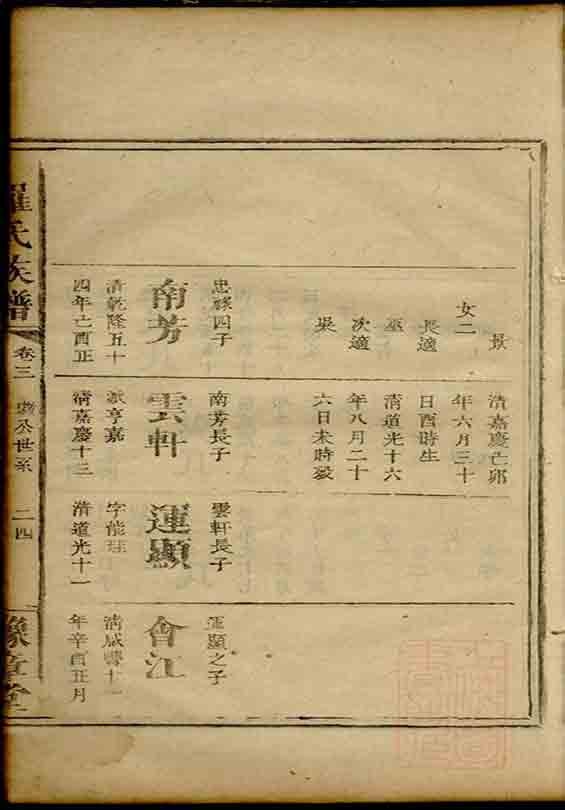 景
女二
長適
巫
次適
吳
忠祿四子
南芳
清乾隆五十
四年己酉正
清嘉慶己卯
年六月三十
日酉時生
清道光十六
年八月二十
六日未時歿
南芳長子
雲軒
派亨嘉
清嘉慶十三
雲軒長子
運顯
字能
清道光十一
運顯之子
會江
清咸豐十一
年辛酉正月
羅氏族譜
卷三
公世系
二四
豫章堂